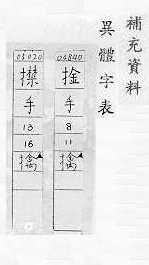 補充資料
異體字表
04840
捦
手
8
11
擒
05020
㩒
手
13
16
擒